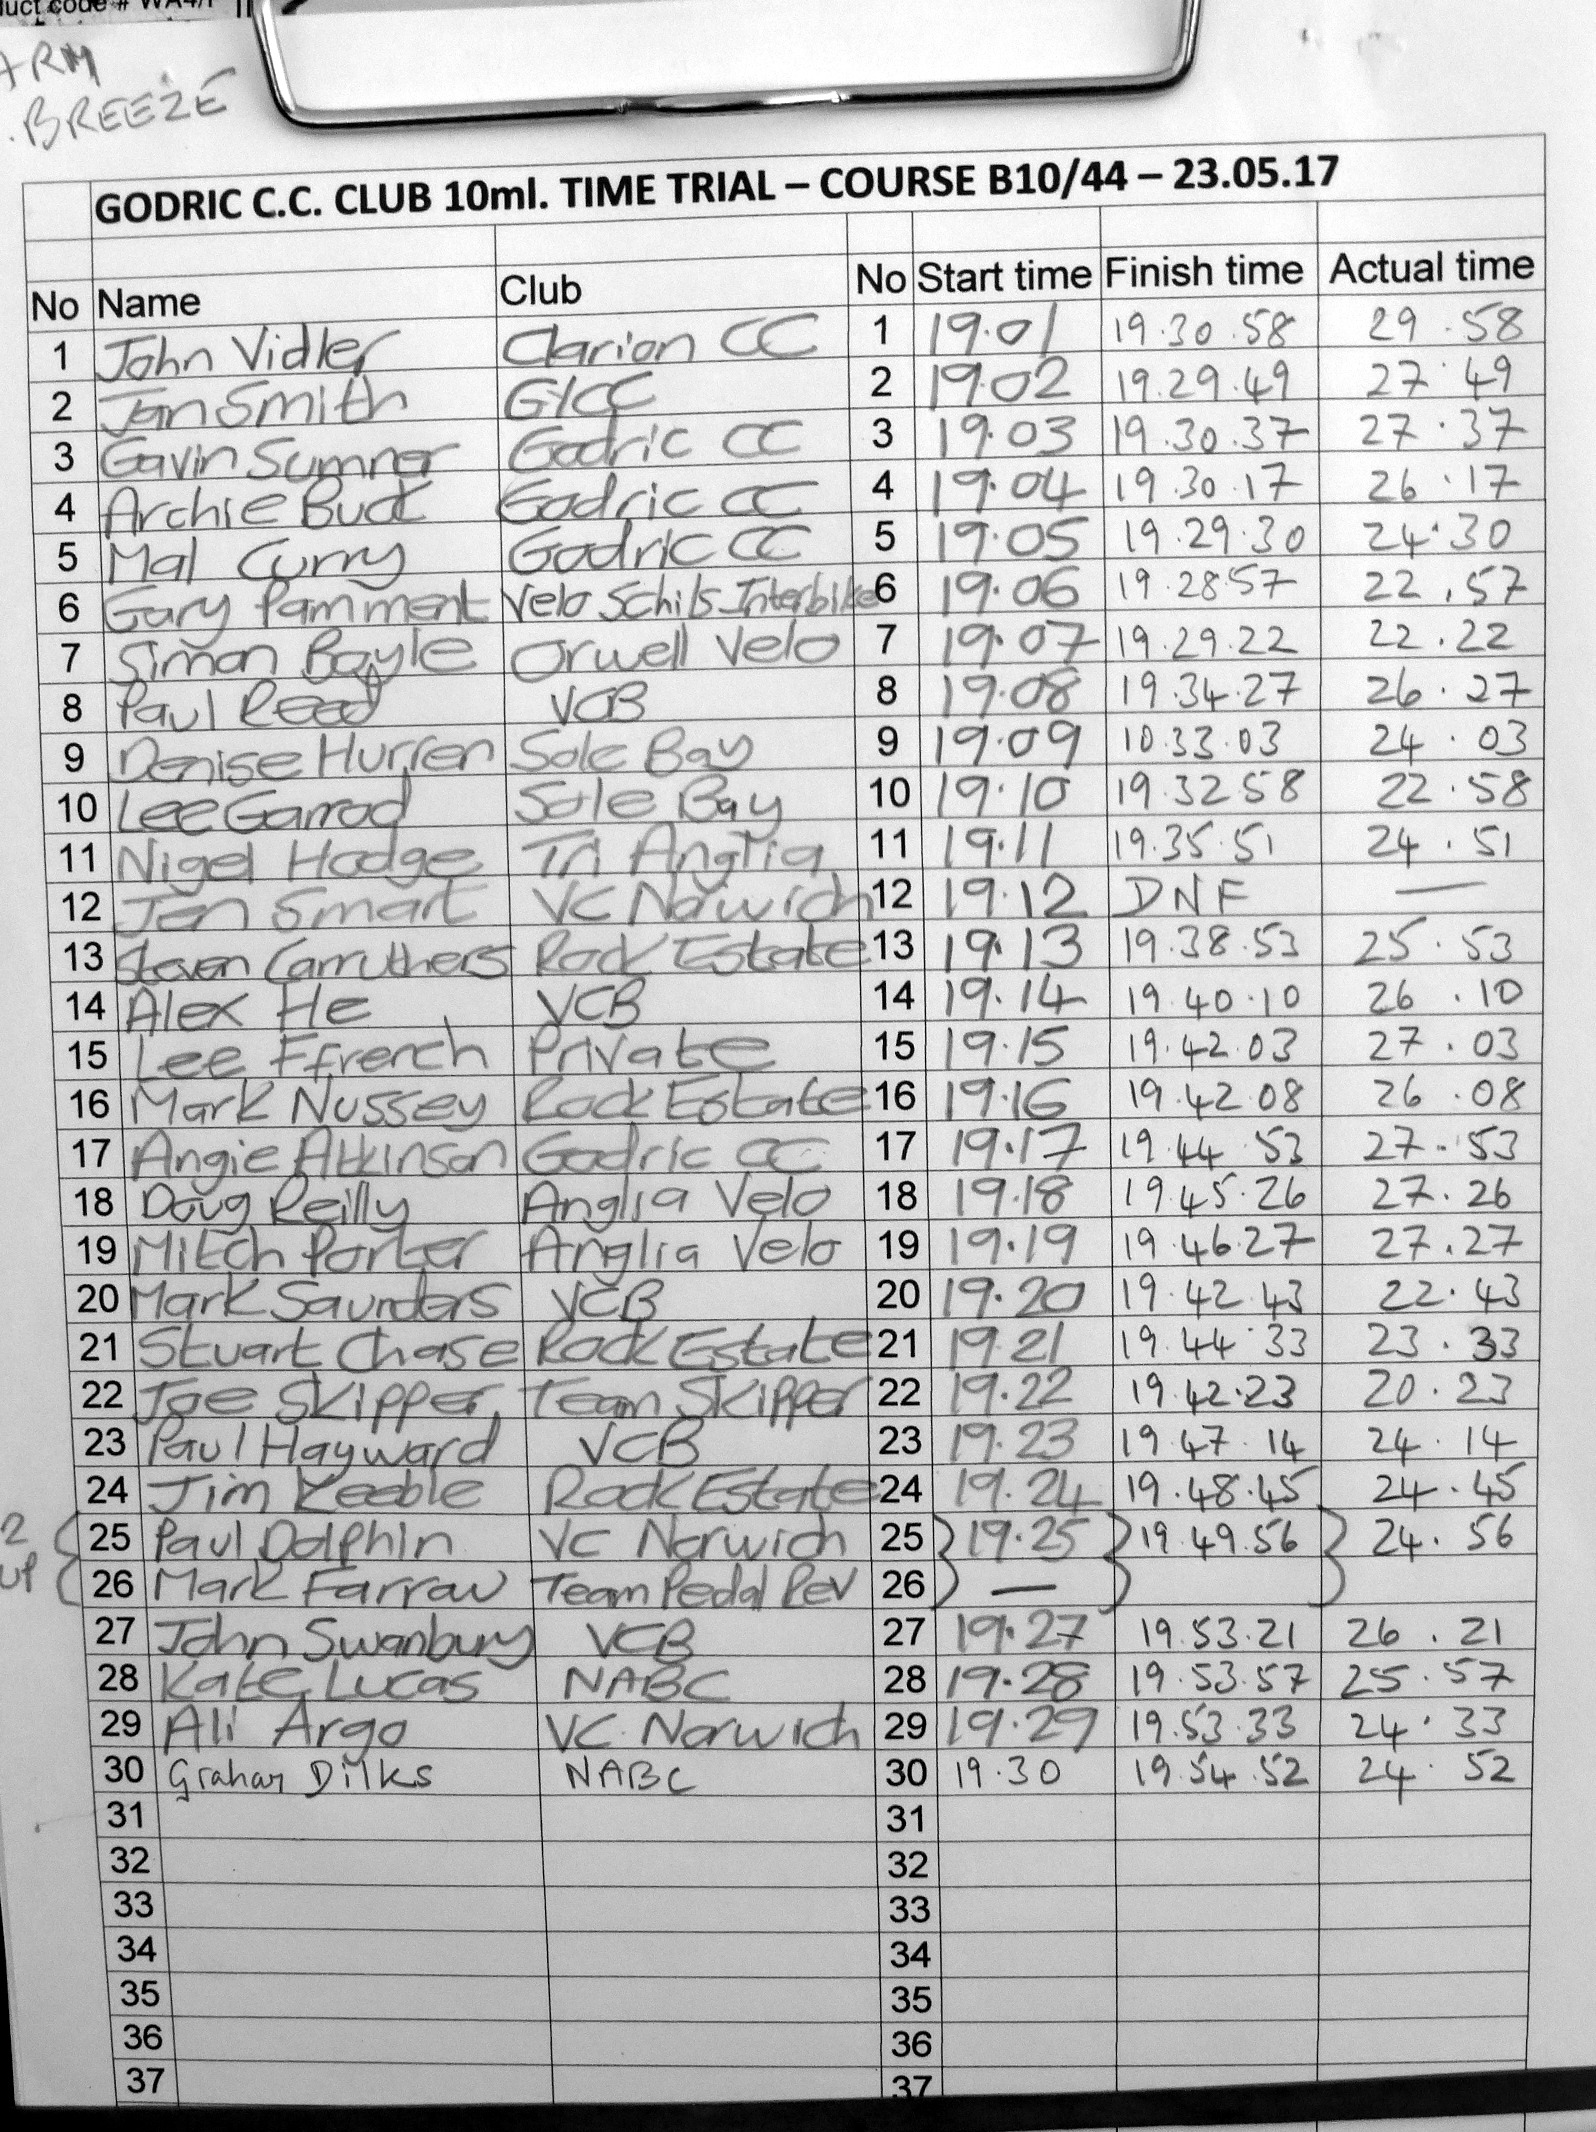 duct code # WA4/1
ARM
BREEZE
GODRIC C.C. CLUB 10ml. TIME TRIAL – COURSE B10/44 – 23.05.17
No Name Club No Start time Finish time Actual time
1 John Vidler Clarion CC 1 19.01 19.30.58 29.58
2 Jan Smith GYCC 2 19.02 19.29.49 27.49
3 Gavin Sumner Godric CC 3 19.03 19.30.37 27.37
4 Archie Buck Godric CC 4 19.04 19.30.17 26.17
5 Mal Curry Godric CC 5 19.05 19.29.30 24.30
6 Gary Pamment Velo Schils Interbike 6 19.06 19.28 57 22.57
7 Simon Bayle Orwell Velo 7 19.07 19.29.22 22.22
8 Paul Read VCB 8 19.08 19.34.27 26.27
9 Denise Hurren Sole Bay 9 19.09 10.33.03 24.03
10 Lee Garrod Sole Bay 10 19.10 19.32 58 22.58
11 Nigel Hodge Tri Anglia 11 19.11 19.35.51 24.51
12 Jen Smart VC Norwich 12 19.12 DNF —
13 Steven Carruthers Rock Estate 13 19.13 19.38.53 25.53
14 Alex He VCB 14 19.14 19.40.10 26.10
15 Lee Ffrench Private 15 19.15 19.42.03 27.03
16 Mark Nussey Rock Estate 16 19.16 19.42 08 26.08
17 Angie Atkinson Godric CC 17 19.17 19.44 53 27.53
18 Doug Reilly Anglia Velo 18 19.18 19.45.26 27.26
19 Mitch Porter Anglia Velo 19 19.19 19.46 27 27.27
20 Mark Saunders VCB 20 19.20 19.42.43 22.43
21 Stuart Chase Rock Estate 21 19.21 19.44.33 23.33
22 Joe Skipper Team Skipper 22 19.22 19.42.23 20.23
23 Paul Hayward VCB 23 19.23 19.47.14 24.14
24 Jim Keeble Rock Estate 24 19.24 19.48.45 24.45
2 UP
25 Paul Dolphin VC Norwich 25 19.25 19.49.56 24.56
26 Mark Farrow Team Pedal Rev 26 —
27 John Swanbury VCB 27 19.27 19.53.21 26.21
28 Kate Lucas NABC 28 19.28 19.53.57 25.57
29 Ali Argo VC Norwich 29 19.29 19.53.33 24.33
30 Graham Dilks NABC 30 19.30 19.54.52 24.52
31 31
32 32
33 33
34 34
35 35
36 36
37 37